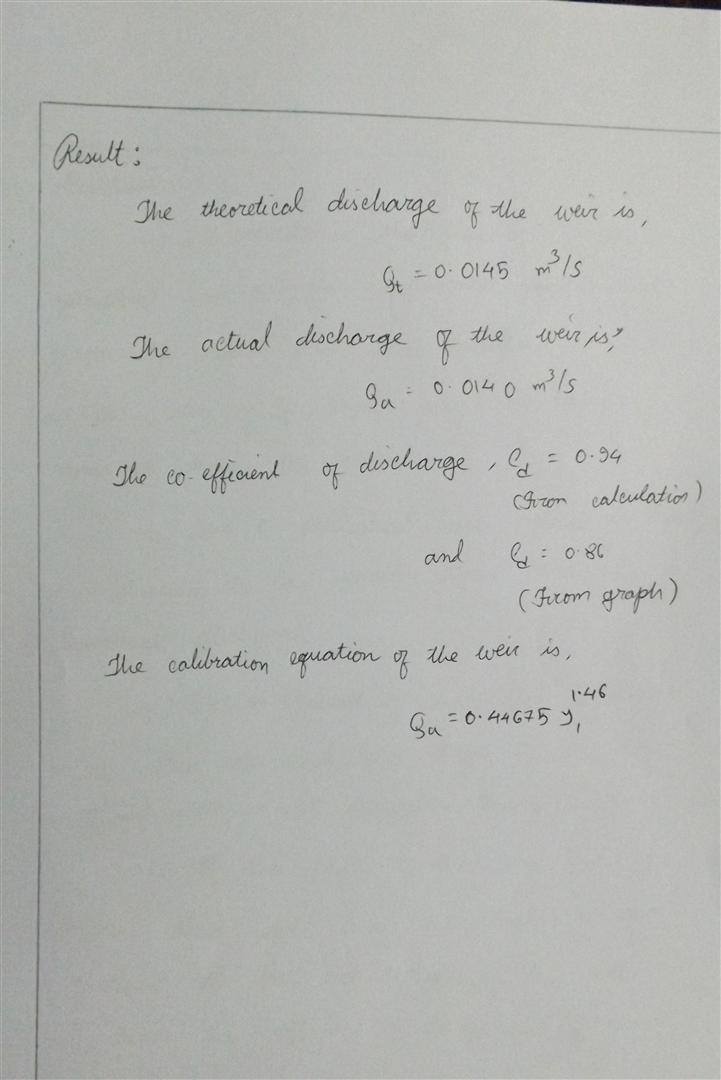 Result :
The theoretical discharge of the weir is,
Qt = 0.0145 m³/s
The actual discharge of the weir is,
Qa = 0.0140 m³/s
The co-efficient of discharge, Cd = 0.94
(From calculation)
and Cd = 0.86
(From graph)
The calibration equation of the weir is,
Qa = 0.44675 y₁^1.46